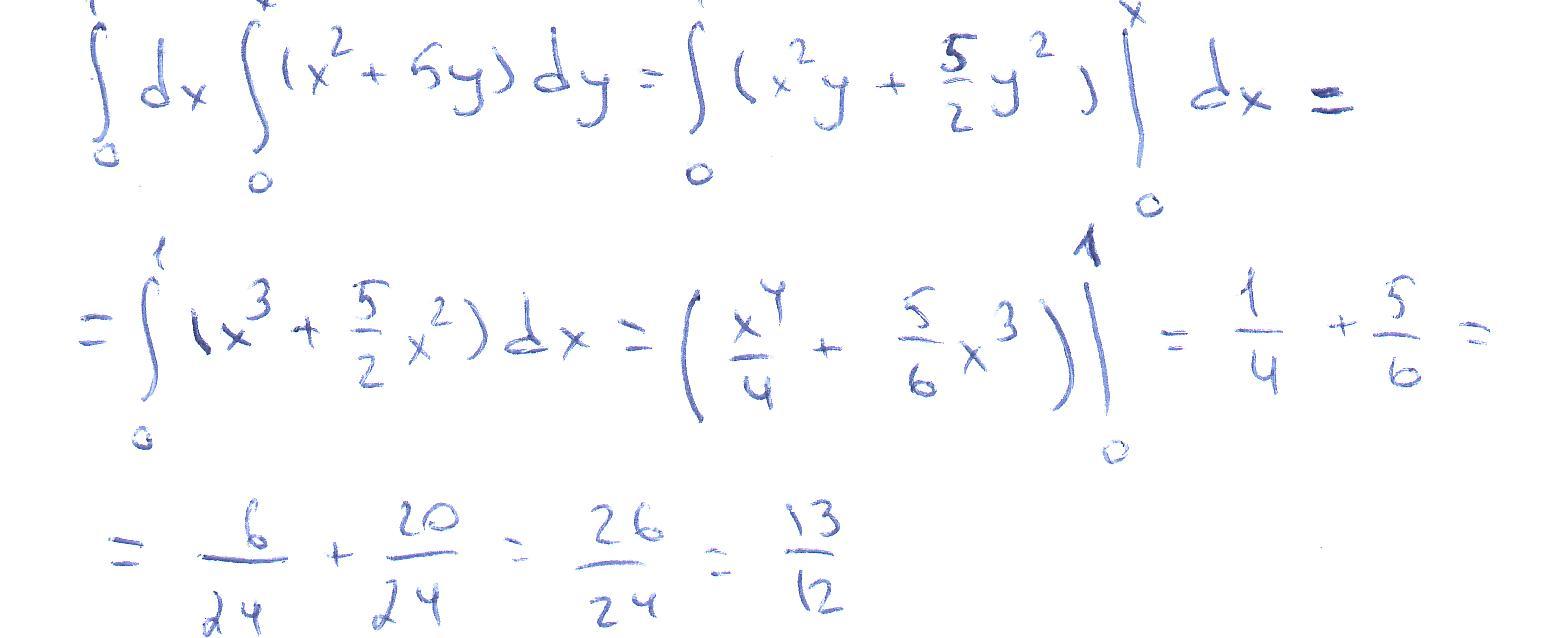 ∫₀¹ dx ∫₀ˣ (x² + 5y) dy = ∫₀¹ (x²y + 5/2 y²) |₀ˣ dx =
= ∫₀¹ (x³ + 5/2 x²) dx = (x⁴/4 + 5/6 x³) |₀¹ = 1/4 + 5/6 =
= 6/24 + 20/24 = 26/24 = 13/12